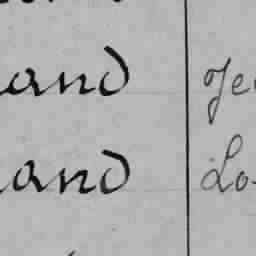 and Je
and Lo